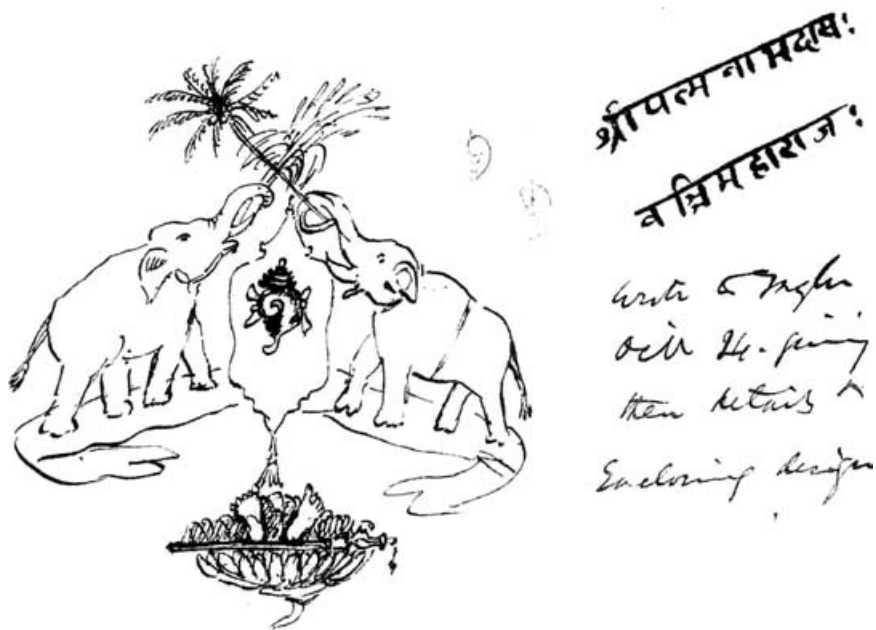 श्रीपत्मनाभदासः
वञ्चिमहाराजः
wrote to
Octr 24 - giving
them details &
Enclosing design